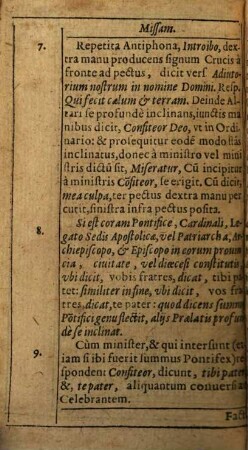 Missam.
7. Repetita Antiphona, Introibo, dex
tra manu producens signum Crucis à
fronte ad pectus, dicit vers Adiuto
rium nostrum in nomine Domini. Resp.
Qui fecit cælum & terram. Deinde Al
tari se profundè inclinans, iunctis ma
nibus dicit, Confiteor Deo, vt in Ordi
nario: & prosequitur eodē modo stās
inclinatus, donec à ministro vel mini
stris dictū sit, Misereatur, Cū incipitur
à ministris Cōfiteor, se erigit. Cū dicit,
mea culpa, ter pectus dextra manu per
cutit, sinistra infra pectus posita.
8. Si est coram Pontifice, Cardinali, Le
gato Sedis Apostolicæ, vel Patriarcha,
chiepiscopo, & Episcopo in eorum prouin
cia, ciuitate, vel diœcesi constitutis
vbi dicit, vobis fratres, dicat, tibi pa
ter: similiter in fine, vbi dicit, vos fra
tres, dicat, te pater: quod dicens summo
Pōtifici genuflectit, alijs Prælatis profun
dè se inclinat.
9. Cùm minister, & qui intersunt (et
iam si ibi fuerit summus Pontifex) re
spondent Confiteor, dicunt, tibi pater,
&, te pater, aliquantum conuersi
Celebrantem.